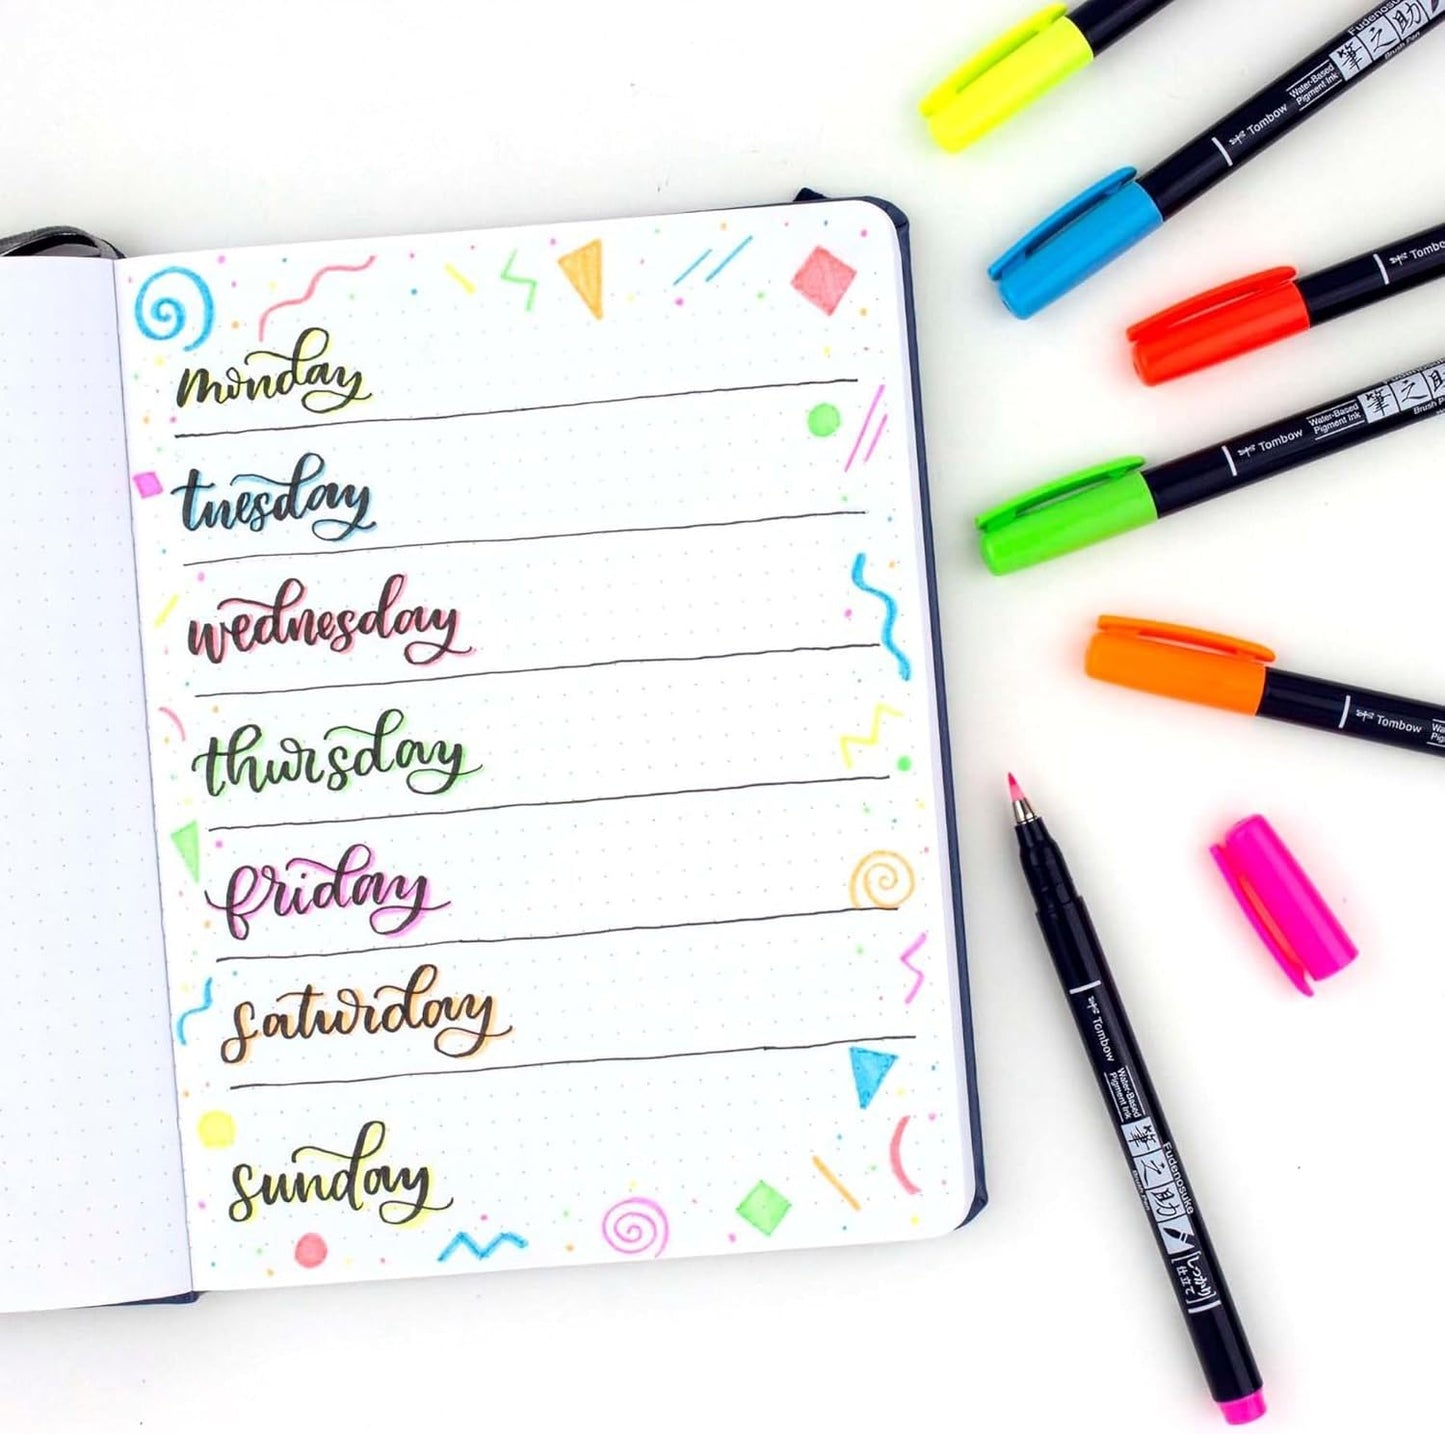 monday
tuesday
wednesday
thursday
friday
saturday
sunday
Tombow
Water-Based
Pigment Ink
筆之助
Fudenosuke
Brush Pen
Tombow
Tombow
Water-Based
Pigment Ink
筆之助
Tombow
Tombow
Water-Based
Pigment Ink
筆之助
Fudenosuke
Brush Pen
しっかり